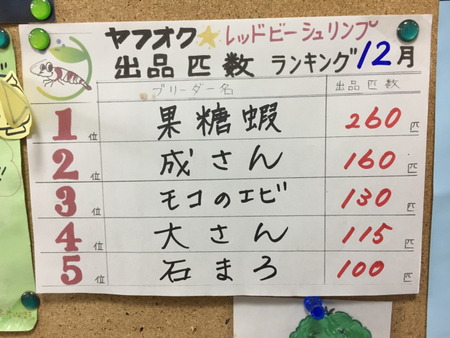 ヤフオク★レッドビーシュリンプ
出品匹数 ランキング 12月
ブリーダー名 出品匹数
1位 果糖蝦 260匹
2位 成さん 160匹
3位 モコのエビ 130匹
4位 大さん 115匹
5位 石まろ 100匹